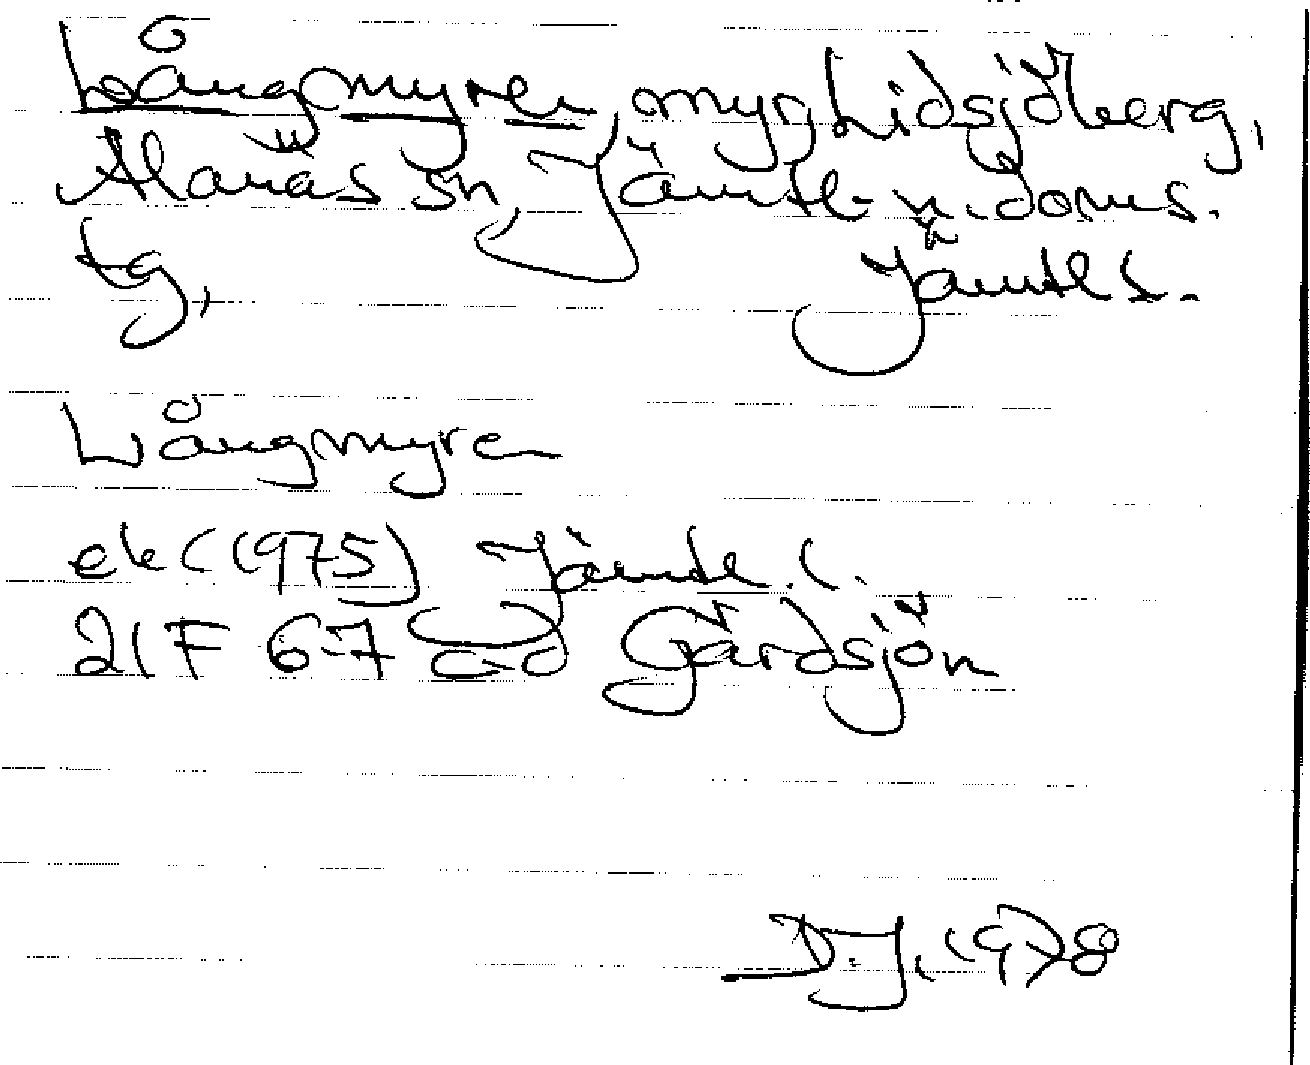 Långmyren, myr, Lidsjöberg,
Alanäs sn, Jämtl. n. doms.
tg, Jämtl l.
Långmyren
ek (1975) Jämtl. l.
21F 6-7 c-d Gärdsjön
D.J. 1978